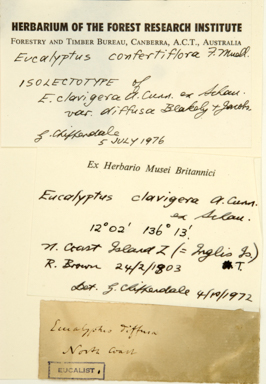 HERBARIUM OF THE FOREST RESEARCH INSTITUTE
FORESTRY AND TIMBER BUREAU, CANBERRA, A.C.T., AUSTRALIA
Eucalyptus confertiflora F. Muell.
ISOLECTOTYPE of
E. clavigera A. Cunn. ex Schau.
var. diffusa Blakely & Jacobs
G. Chippendale
5 JULY 1976
Ex Herbario Musei Britannici
Eucalyptus clavigera A. Cunn.
ex Schau.
12°02' 136°13'
N. Coast Island Z (= Inglis Is.)
R. Brown 24/2/1803 NT.
Det. G. Chippendale 4/10/1972
Eucalyptus diffusa
North Coast
EUCALIST